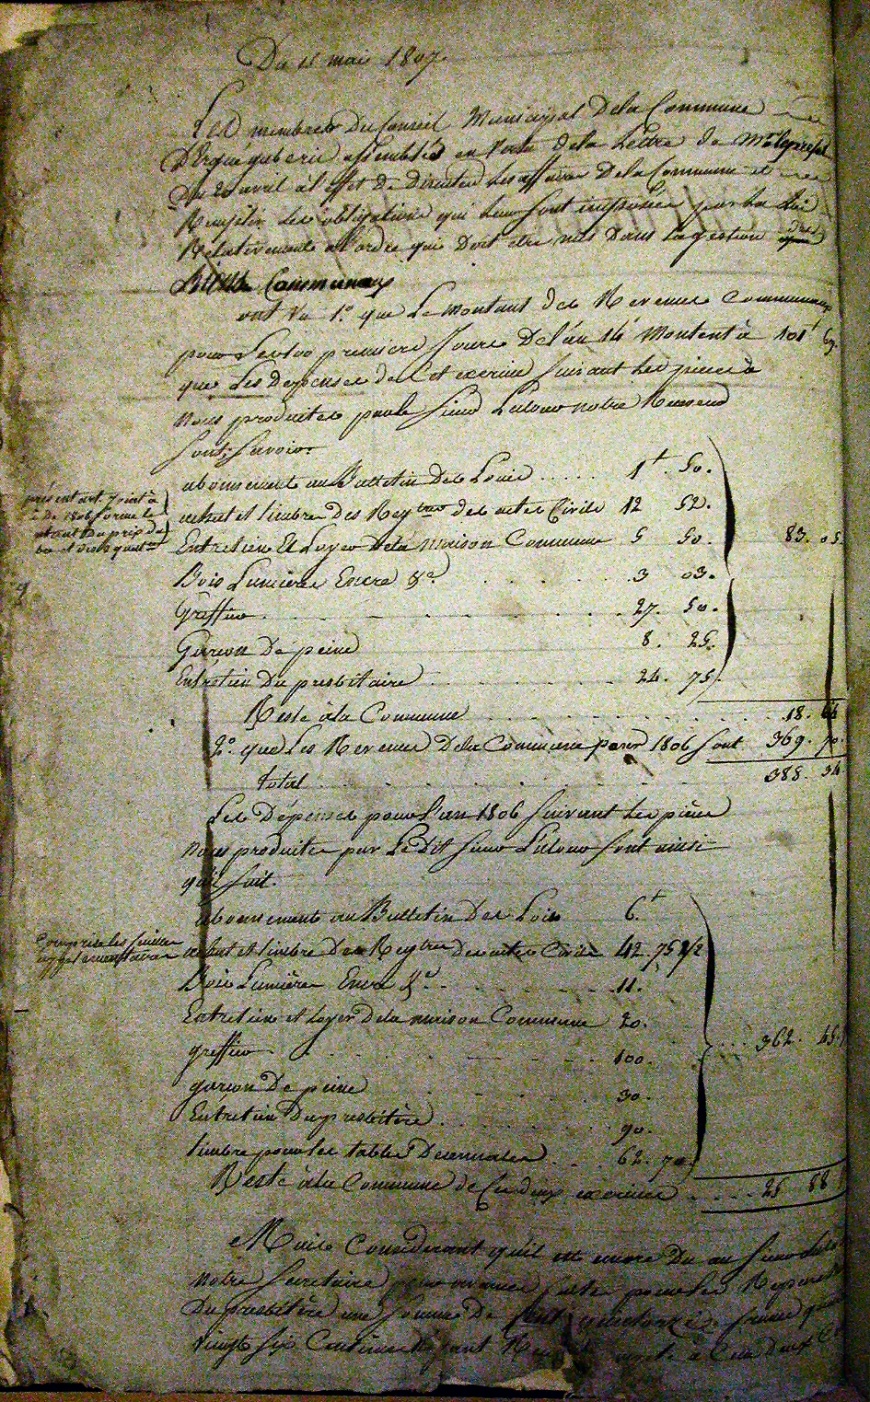 Du 11 mai 1807
Les membres du Conseil Municipal dela Commune
D'Ergué guberic assemblés en vertu dela Lettre de Mr le prefet
du 20 avril à l'effet de discuter les affaires dela Commune et
Remplir les obligations qui leur sont imposées par la Loi
Relativement a l'ordre qui doit etre mis dans la gestion des
Communaux
ont vu 1.o que Le montant des Revenus Communaux
pour Les 100 premiers Jours De l'an 14 Montent à 101 69.
que Les Depenses de Cet exercice suivant les pieces à
nous produites par le Sieur notre Receveur
sont; Savoir:
abonnement au Bulletin Des Lois ..... 1 + 50.
achat et timbre Des Regtres des actes Civils 12 52.
Entretien Et Loyer Dela Maison Commune 5 50. 83. 05.
Bois Lumière Encre &a 3 03.
Greffier 27. 50.
Garçon De peine 8. 25.
Entretien Du presbitaire 24. 75.
présent art. joint à
de 1806 forme le
du prix de
Reste àla Commune 18. 64
2.o que Les Revenus Dela Commune pour 1806 sont 369. 70.
total 388. 34
Les Dépenses pour l'an 1806 suivant les pièces
nous produites par Le Dit Sieur sont ainsi
qu'il suit.
abonnement au Bulletin Des Lois 6.+
achat et timbre Des Regtres des actes Civils 42. 75 1/2
Comprise les feuilles
supplementaires
Bois Lumière Encre &a 11.
Entretien et Loyer dela maison Commune 20. 362. 45.
greffier 100.
garçon De peine 30.
Entretien Du presbitère 90.
timbre pour les tables Decennales 62. 70
Reste àla Commune de Ces deux exercices 25 88
Mais Considerant qu'il est encore Du au Sieur
notre Secretaire pour avances faites pour les Reparations
Du presbitère une somme De quatorze francs
vingt six Centimes à Ces Deux